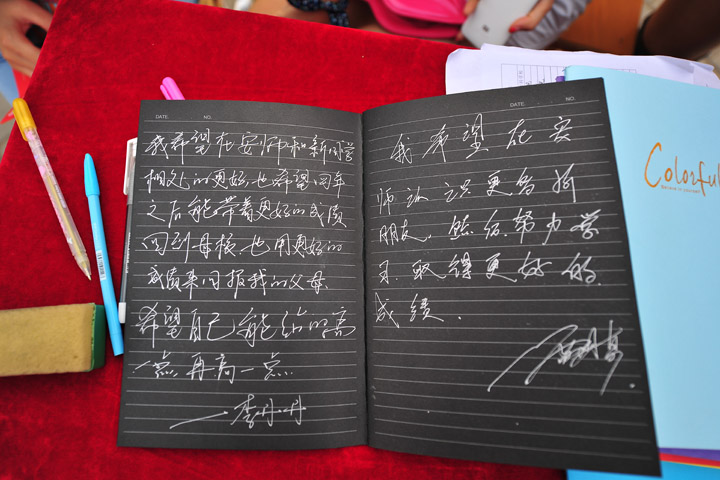 DATE. NO.
我希望在安师和新同学
相处的更好,也希望四年
之后能带着更好的成绩
回到母校,也用更好的
成绩来回报我的父母.
希望自己能给的高
一点再高一点.
——李丹丹
DATE. NO.
我希望在安
师认识更多新
朋友,继续努力学
习,取得更好的
成绩.
Colorful